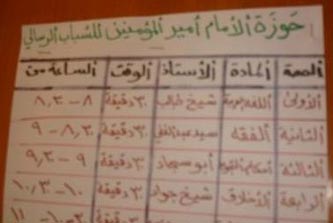 حوزة الأمام أمير المؤمنين للشباب الرسالي
الحصة المادة الأستاذ الوقت الساعة من
الأولى شيخ ٣٠ دقيقة ٨ - ٨,٣٠
الثانية الفقه سيد ٣٠ دقيقة ٨,٣٠ - ٩
الثالثة أحكام أبو سجاد ٣٠ دقيقة ٩ - ٩,٣٠
الرابعة الأخلاق شيخ جواد ٣٠ دقيقة ١٠ - ١٠,٣٠